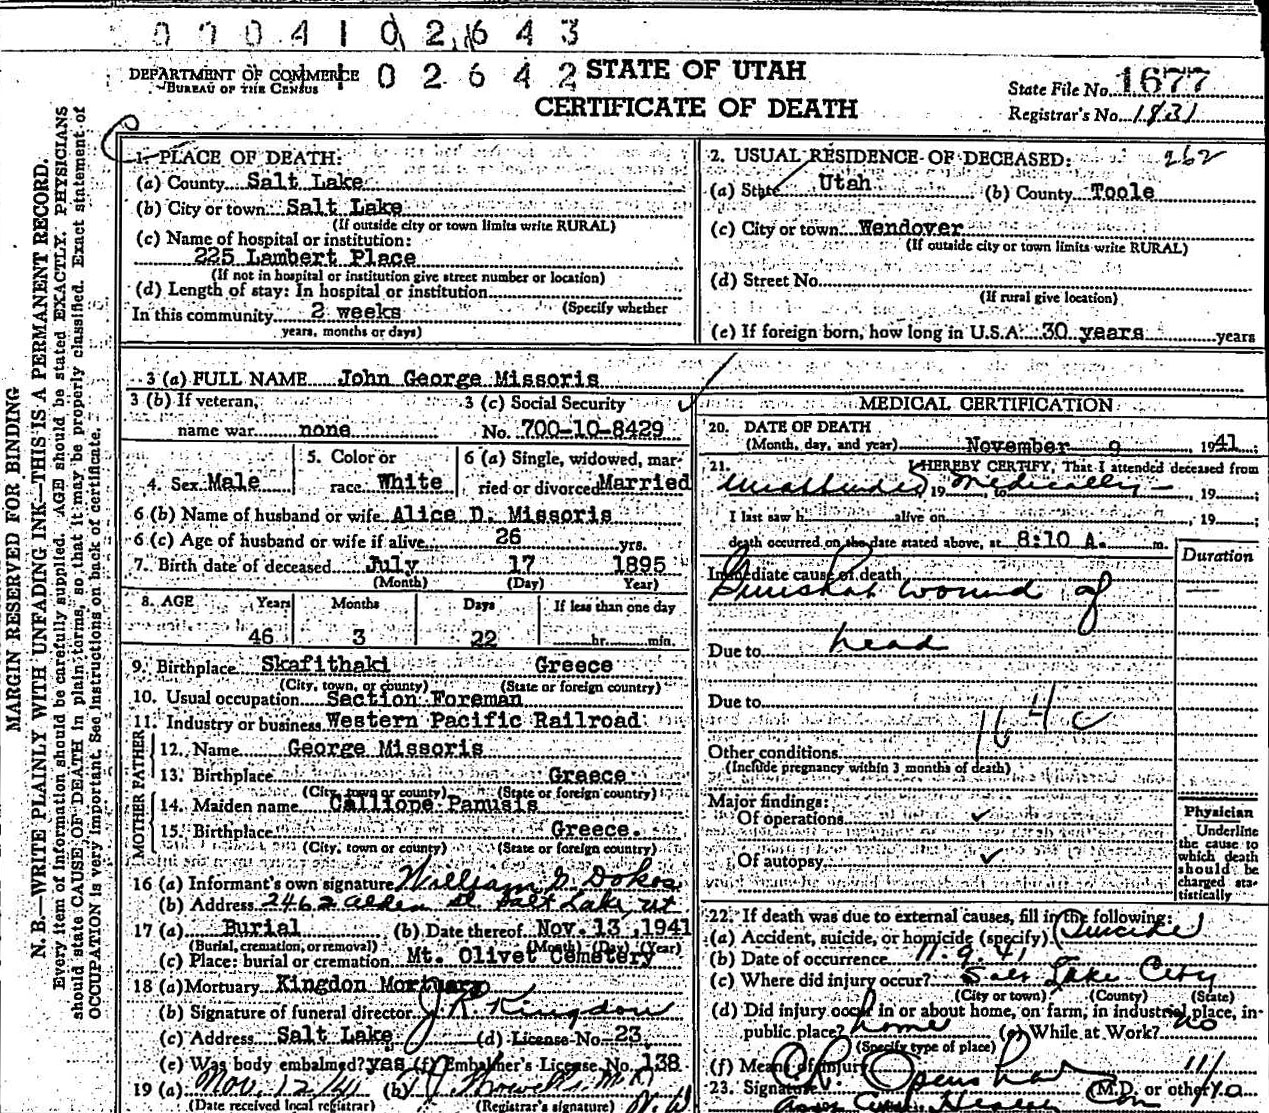 0 0 0 4 1 0 2 6 4 3
DEPARTMENT OF COMMERCE
BUREAU OF THE CENSUS
1 0 2 6 4 2
STATE OF UTAH
CERTIFICATE OF DEATH
State File No. 1677
Registrar's No. 1831
MARGIN RESERVED FOR BINDING
N. B.—WRITE PLAINLY WITH UNFADING INK—THIS IS A PERMANENT RECORD.
Every item of information should be carefully supplied. AGE should be stated EXACTLY. PHYSICIANS
should state CAUSE OF DEATH in plain terms, so that it may be properly classified. Exact statement of
OCCUPATION is very important. See instructions on back of certificate.
1. PLACE OF DEATH:
(a) County Salt Lake
(b) City or town Salt Lake
(If outside city or town limits write RURAL)
(c) Name of hospital or institution:
225 Lambert Place
(If not in hospital or institution give street number or location)
(d) Length of stay: In hospital or institution
(Specify whether
In this community 2 weeks
years, months or days)
2. USUAL RESIDENCE OF DECEASED: 262
(a) State Utah (b) County Toole
(c) City or town Wendover
(If outside city or town limits write RURAL)
(d) Street No.
(If rural give location)
(e) If foreign born, how long in U.S.A. 30 years years
3 (a) FULL NAME John George Missoris
3 (b) If veteran, name war none
3 (c) Social Security No. 700-10-8429
4. Sex Male
5. Color or race White
6 (a) Single, widowed, married or divorced Married
6 (b) Name of husband or wife Alice D. Missoris
6 (c) Age of husband or wife if alive 26 yrs.
7. Birth date of deceased July 17 1895
(Month) (Day) (Year)
8. AGE Years Months Days If less than one day
46 3 22 hr. min.
9. Birthplace Skafithaki Greece
(City, town, or county) (State or foreign country)
10. Usual occupation Section Foreman
11. Industry or business Western Pacific Railroad
FATHER
12. Name George Missoris
13. Birthplace Greece
(City, town or county) (State or foreign country)
MOTHER
14. Maiden name Calliope Pamusis
15. Birthplace Greece.
(City, town or county) (State or foreign country)
16 (a) Informant's own signature William G. Dokos
(b) Address 2462 Alden St. Salt Lake, Ut
17 (a) Burial (b) Date thereof Nov. 13, 1941
(Burial, cremation, or removal) (Month) (Day) (Year)
(c) Place: burial or cremation Mt. Olivet Cemetery
18 (a) Mortuary Kingdon Mortuary
(b) Signature of funeral director J R Kingdon
(c) Address Salt Lake (d) License No. 23
(e) Was body embalmed? yes (f) Embalmer's License No. 138
19 (a) Nov. 12/41 (b)
(Date received local registrar) (Registrar's signature)
MEDICAL CERTIFICATION
20. DATE OF DEATH
(Month, day, and year) November 9, 1941
21. I HEREBY CERTIFY, That I attended deceased from
Unattended 19 Medically to , 19
I last saw h alive on , 19
death occurred on the date stated above, at 8:10 A. m.
Duration
Immediate cause of death
Gunshot wound of
Due to head
Due to
164c
Other conditions
(Include pregnancy within 3 months of death)
Major findings:
Of operations ✓
Of autopsy ✓
Physician
Underline
the cause to
which death
should be
charged sta-
tistically
22. If death was due to external causes, fill in the following:
(a) Accident, suicide, or homicide (specify) Suicide
(b) Date of occurrence 11.9.41
(c) Where did injury occur? Salt Lake City
(City or town) (County) (State)
(d) Did injury occur in or about home, on farm, in industrial place, in
public place? home (e) While at Work? no
(Specify type of place)
(f) Means of injury
23. Signature (M.D. or other)